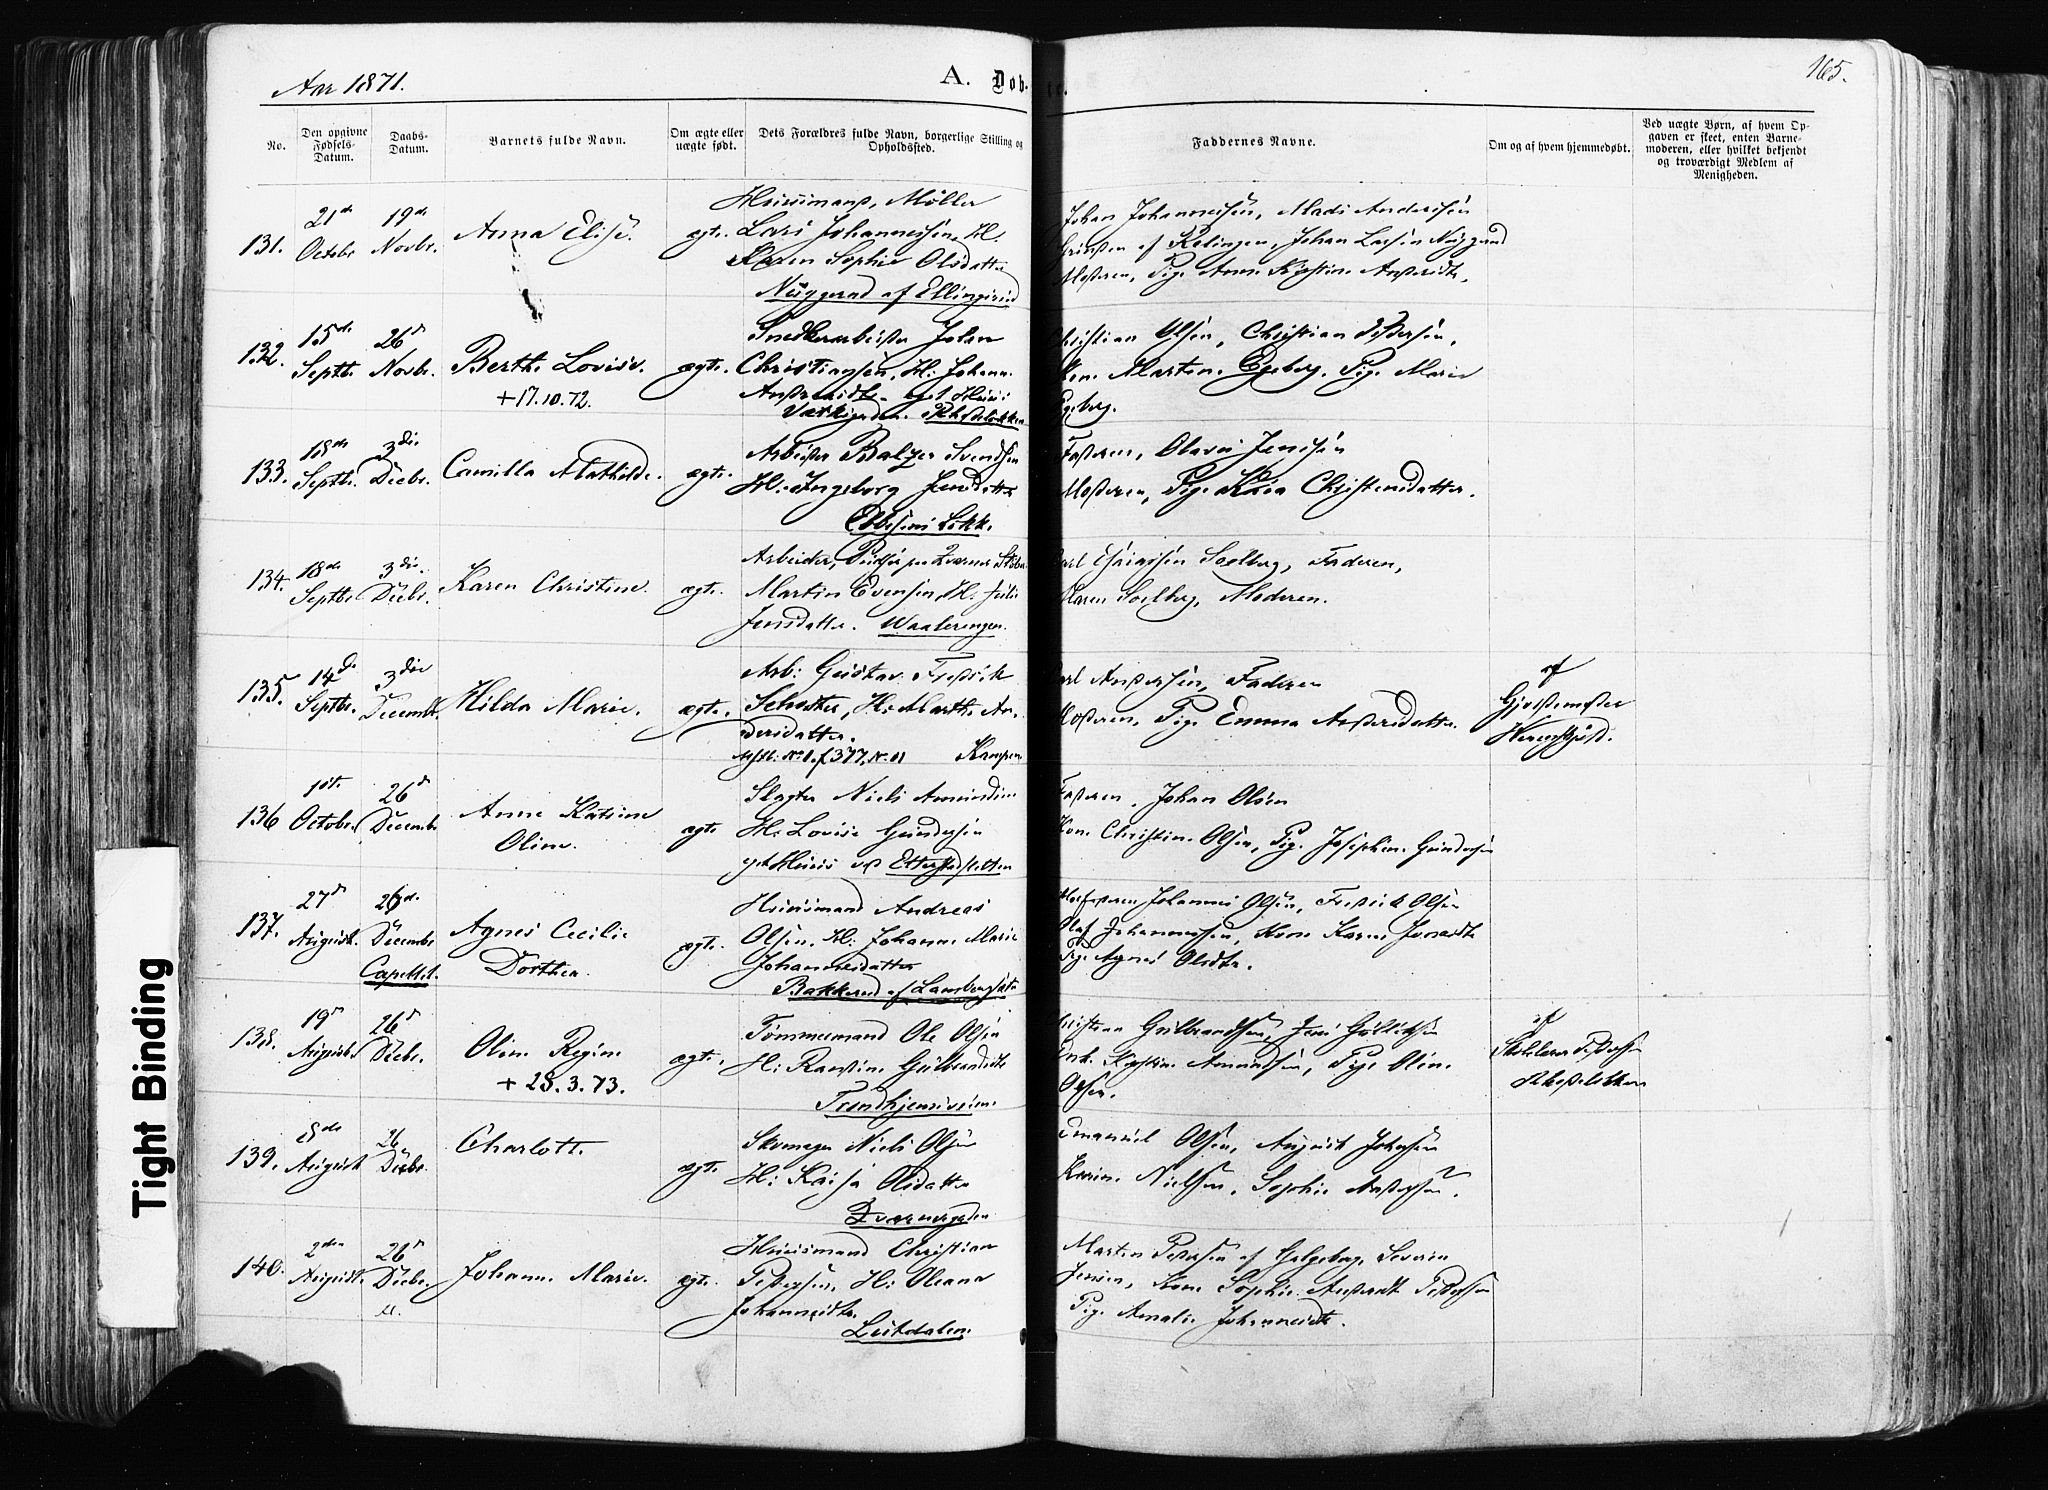 Aar 1871.
A. Døb
165.
No.
Den opgivne Fødsels-Datum.
Daabs-Datum.
Barnets fulde Navn.
Om ægte eller uægte født.
Dets Forældres fulde Navn, borgerlige Stilling og Opholdssted.
Faddernes Navne.
Om og af hvem hjemmedøbt.
Ved uægte Børn, af hvem Opgaven er skeet, enten Barnemoderen, eller hvilket bekjendt og troværdigt Medlem af Menigheden.
131.
21de Octobr
19de Novbr.
Anna Elise.
ægte.
Huusmand, Møller
Lars Johannessen, H.
Karen Sophie Olsdatter
Nuggerud af Ellingsrud
Johan Johannessen, Mads Andersen
af Rælingen, Johan Larsen Nuggerud
Mosteren, Pige Anne Kirstine
132.
15de Septbr.
26d Novbr.
Berthe Lovise.
+ 17.10.72.
ægte.
Snedkerarbeider Johan
Christiansen, H: Johanne
Christian Olsen, Christian Pedersen,
Kone Martine Egeberg, Pige Marie
Egeberg.
133.
18de Septbr.
3die Decbr.
Camilla Mathilde.
ægte.
Arbeider Balzer Svendsen
H: Ingeborg Jensdatter
Ebbesens Løkke
Faderen, Olavus Jensen
Mosteren, Pige Christensdatter.
134.
18de Septbr
3die Decbr.
Karen Christine.
ægte.
Arbeider,
Martin Evensen, H: Julie
Jensdatter. Waalerengen.
Solberg, Faderen,
Maren Solberg, Moderen.
135.
14de Septbr.
3die Decembr.
Hilda Marie.
ægte.
Arb: Gustav Fredrik
H: Marthe An-
dersdatter.
Kampen
Carl Andersen, Faderen
Mosteren, Pige Emma Andersdatter.
af
136
1ste Octobr.
26d Decembr
Anne Katrine
Oline.
ægte
Slagter Niels Amundsen
H: Lovise Gundersen
Faderen, Johan Olsen
Kone Christine Olsen, Pige Josephine Gundersen
137.
27d August.
26de Decembr
Capellet.
Agnes Cecilie
Dorthea.
ægte.
Huusmand Andreas
Olsen, H: Johanne Marie
Johannesdatter
Bakkerud af Lambertsæter
Johannes Olsen, Fredrik Olsen
Olaf Johannessen, Kone Karen
Pige Agnes Olsdtr.
138.
19d August.
26d Decbr.
Oline Regine
+ 28.3.73.
ægte.
Tømmermand Ole Olsen
H: Gulbrandsdtr
Trondhjemsveien.
Christian Gulbrandsen, Jens
Kirstine Amundsen, Pige Oline
Olsen.
af
139.
8de August
26 Decbr.
Charlotte.
ægte
Skomager Niels Olsen
H: Kaisa Olsdatter
Emanuel Olsen, August Johnsen
Karine Nielsen, Sophie Andersen.
140.
2den August.
26d Decbr.
Johanne Marie.
ægte.
Huusmand Christian
Pedersen, H: Oleana
Johannesdtr.
Lutdalen
Martin Pedersen af Galgeberg, Severin
Jensen, Kone Sophie Pedersen
Pige Amalie Johannesdtr.
Tight Binding